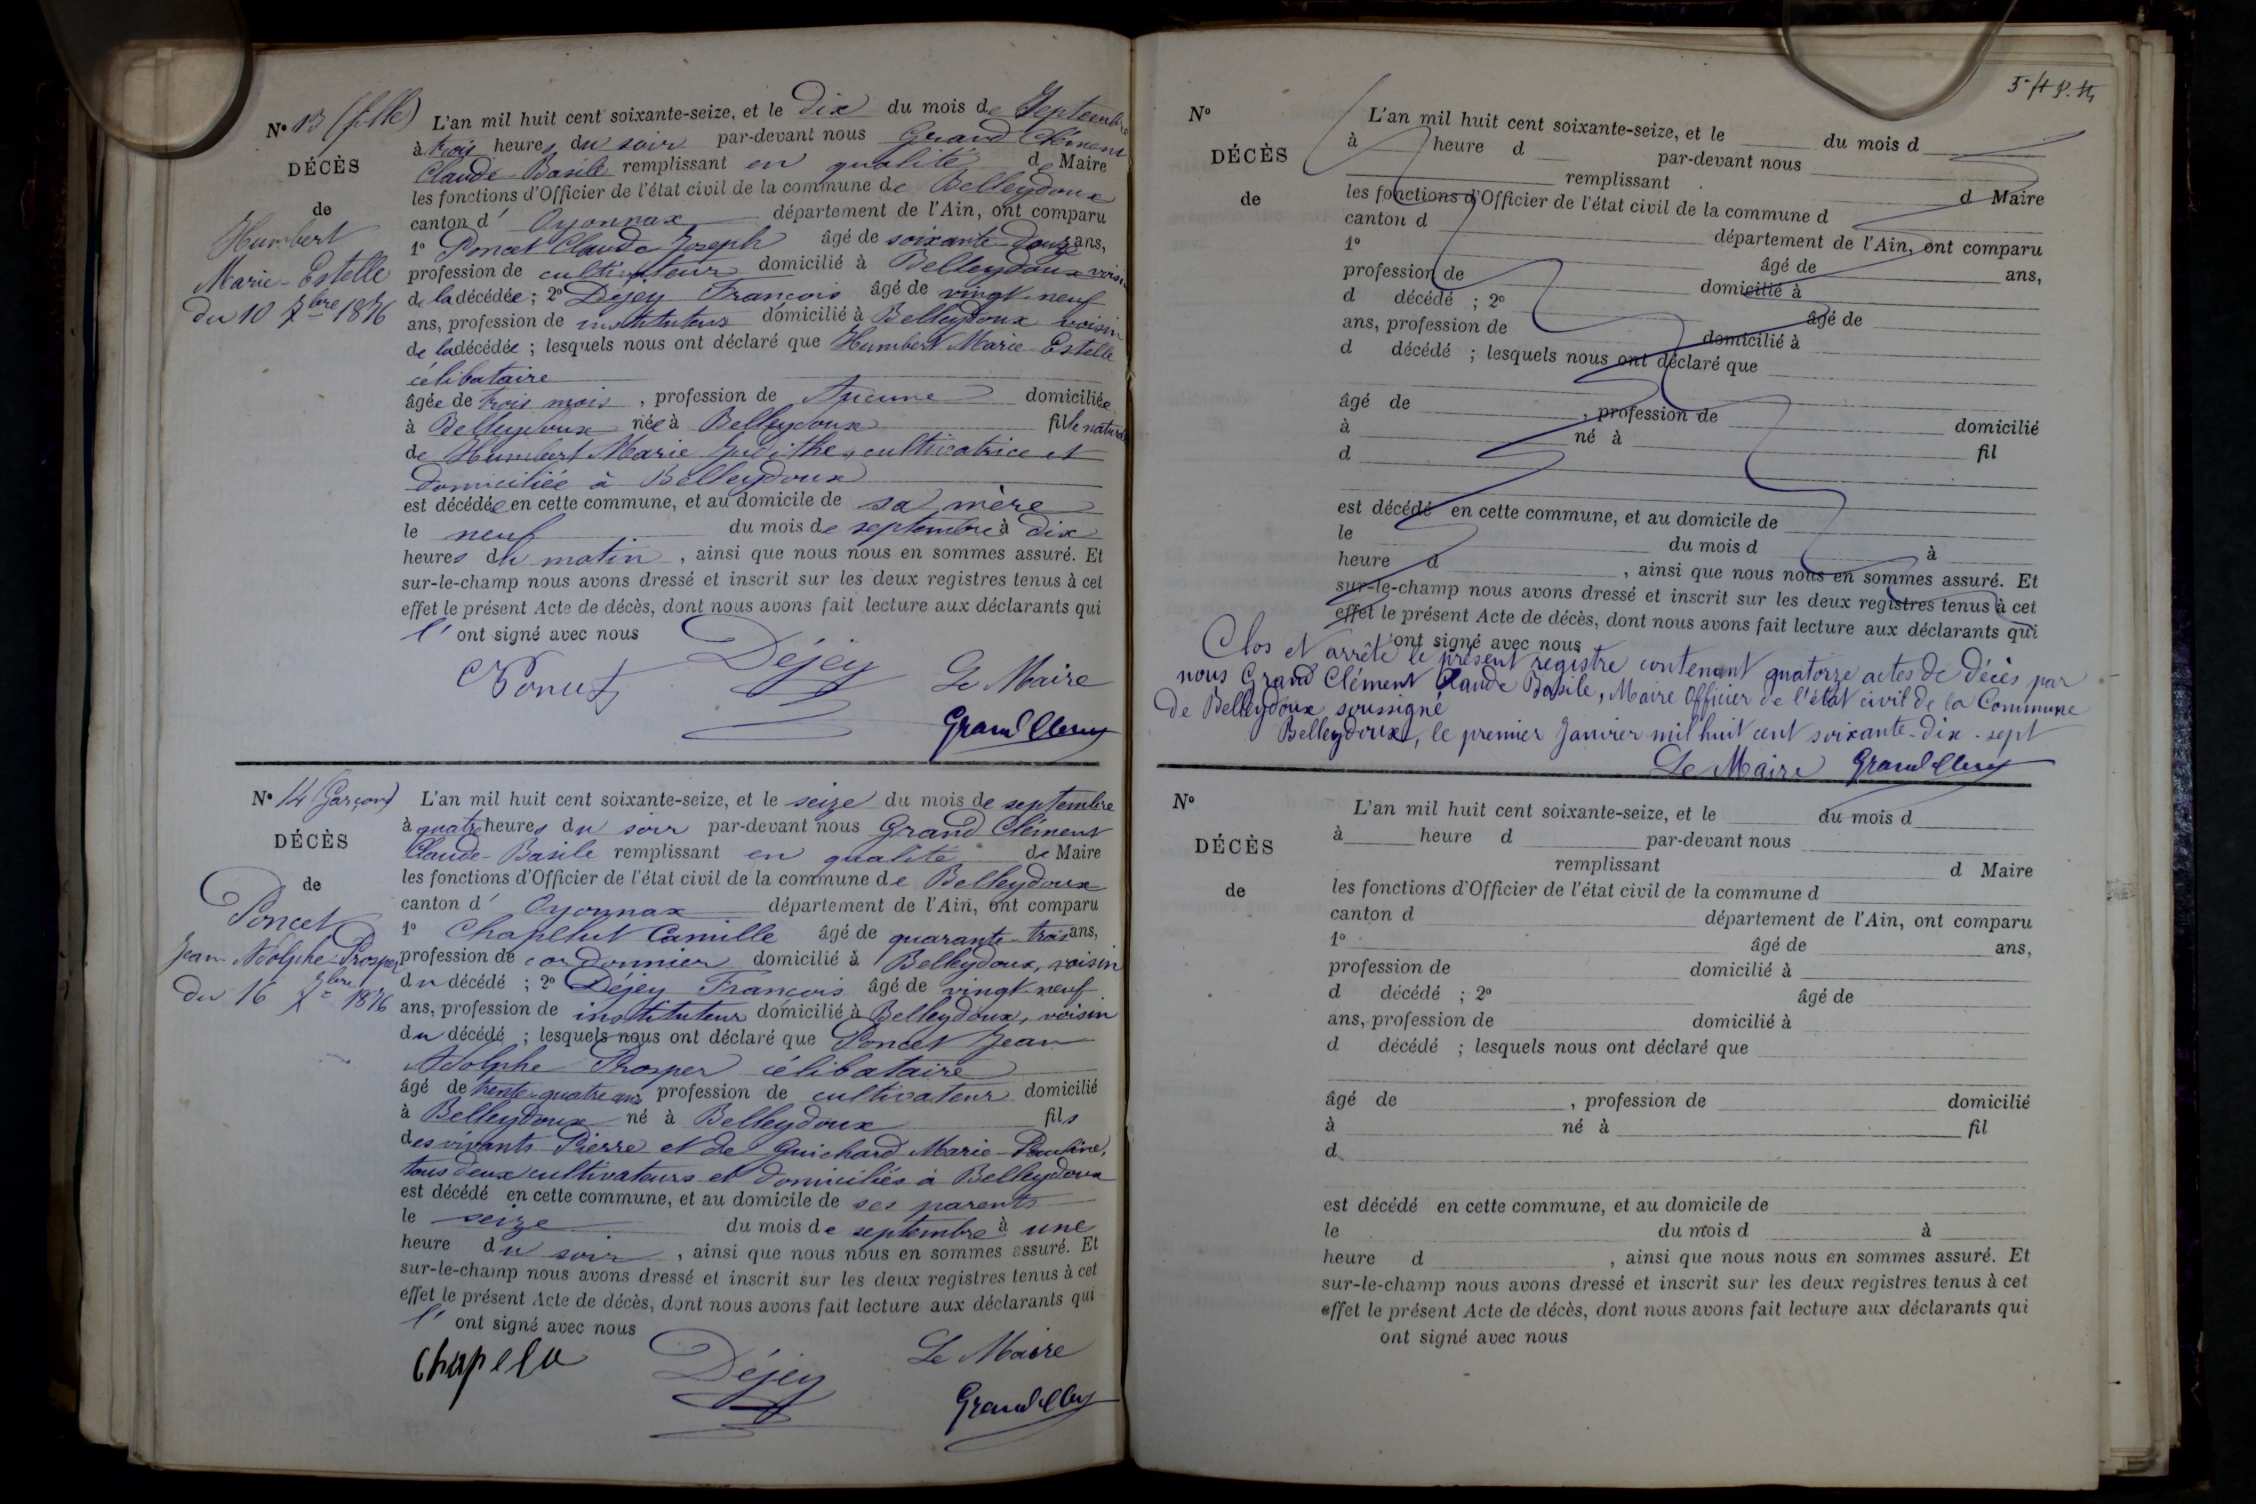 N° 13 (fille)
DÉCÈS
de
Humbert
Marie-Estelle
du 10 7bre 1876
L'an mil huit cent soixante-seize, et le dix du mois de Septembre
à trois heures du soir par-devant nous Grand Clément
Claude-Basile remplissant en qualité de Maire
les fonctions d'Officier de l'état civil de la commune de Belleydoux
canton d' Oyonnax département de l'Ain, ont comparu
1° Poncet Claude Joseph âgé de soixante-douze ans,
profession de cultivateur domicilié à Belleydoux voisin
de la décédée ; 2° Déjey François âgé de vingt-neuf
ans, profession de instituteur domicilié à Belleydoux voisin
de la décédée ; lesquels nous ont déclaré que Humbert Marie-Estelle
célibataire
âgée de trois mois , profession de Aucune domiciliée
à Belleydoux née à Belleydoux fille naturelle
de Humbert Marie Judithe, cultivatrice et
domiciliée à Belleydoux
est décédée en cette commune, et au domicile de sa mère
le neuf du mois de septembre à dix
heures du matin , ainsi que nous nous en sommes assuré. Et
sur-le-champ nous avons dressé et inscrit sur les deux registres tenus à cet
effet le présent Acte de décès, dont nous avons fait lecture aux déclarants qui
l' ont signé avec nous
Poncet Déjey Le Maire
Grand Clément
N° 14 (Garçon)
DÉCÈS
de
Poncet
Jean-Adolphe-Prosper
du 16 7bre 1876
L'an mil huit cent soixante-seize, et le seize du mois de septembre
à quatre heures du soir par-devant nous Grand Clément
Claude-Basile remplissant en qualité de Maire
les fonctions d'Officier de l'état civil de la commune de Belleydoux
canton d' Oyonnax département de l'Ain, ont comparu
1° Chapelut Camille âgé de quarante-trois ans,
profession de cordonnier domicilié à Belleydoux, voisin
du décédé ; 2° Déjey François âgé de vingt-neuf
ans, profession de instituteur domicilié à Belleydoux, voisin
du décédé ; lesquels nous ont déclaré que Poncet Jean
Adolphe Prosper célibataire
âgé de trente-quatre ans profession de cultivateur domicilié
à Belleydoux né à Belleydoux fils
des vivants Pierre et de Guichard Marie-Pauline,
tous deux cultivateurs et domiciliés à Belleydoux
est décédé en cette commune, et au domicile de ses parents
le seize du mois de septembre à une
heure du soir , ainsi que nous nous en sommes assuré. Et
sur-le-champ nous avons dressé et inscrit sur les deux registres tenus à cet
effet le présent Acte de décès, dont nous avons fait lecture aux déclarants qui
l' ont signé avec nous
Chapelu Déjey Le Maire
Grand Clément
N°
DÉCÈS
de
L'an mil huit cent soixante-seize, et le du mois d
à heure d par-devant nous
remplissant d Maire
les fonctions d'Officier de l'état civil de la commune d
canton d département de l'Ain, ont comparu
1° âgé de ans,
profession de domicilié à
d décédé ; 2° âgé de
ans, profession de domicilié à
d décédé ; lesquels nous ont déclaré que
âgé de , profession de domicilié
à né à fil
d
est décédé en cette commune, et au domicile de
le du mois d à
heure d , ainsi que nous nous en sommes assuré. Et
sur-le-champ nous avons dressé et inscrit sur les deux registres tenus à cet
effet le présent Acte de décès, dont nous avons fait lecture aux déclarants qui
ont signé avec nous
Clos et arrêté le présent registre contenant quatorze actes de décès par
nous Grand Clément Claude Basile, Maire Officier de l'état civil de la Commune
de Belleydoux soussigné
Belleydoux, le premier Janvier mil huit cent soixante-dix-sept
Le Maire Grand Clément
N°
DÉCÈS
de
L'an mil huit cent soixante-seize, et le du mois d
à heure d par-devant nous
remplissant d Maire
les fonctions d'Officier de l'état civil de la commune d
canton d département de l'Ain, ont comparu
1° âgé de ans,
profession de domicilié à
d décédé ; 2° âgé de
ans, profession de domicilié à
d décédé ; lesquels nous ont déclaré que
âgé de , profession de domicilié
à né à fil
d
est décédé en cette commune, et au domicile de
le du mois d à
heure d , ainsi que nous nous en sommes assuré. Et
sur-le-champ nous avons dressé et inscrit sur les deux registres tenus à cet
effet le présent Acte de décès, dont nous avons fait lecture aux déclarants qui
ont signé avec nous